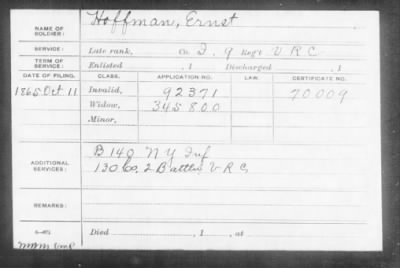 NAME OF SOLDIER: Hoffman, Ernst
SERVICE: Late rank, Co. I, 9 Reg't V R C
TERM OF SERVICE: Enlisted , 1 Discharged , 1
DATE OF FILING. CLASS. APPLICATION NO. LAW. CERTIFICATE NO.
1865 Oct 11 Invalid, 92371 70009
Widow, 345800
Minor,
ADDITIONAL SERVICES: B 140 N Y Inf
130 Co, 2 Battln V R C
REMARKS:
Died , 1 , at